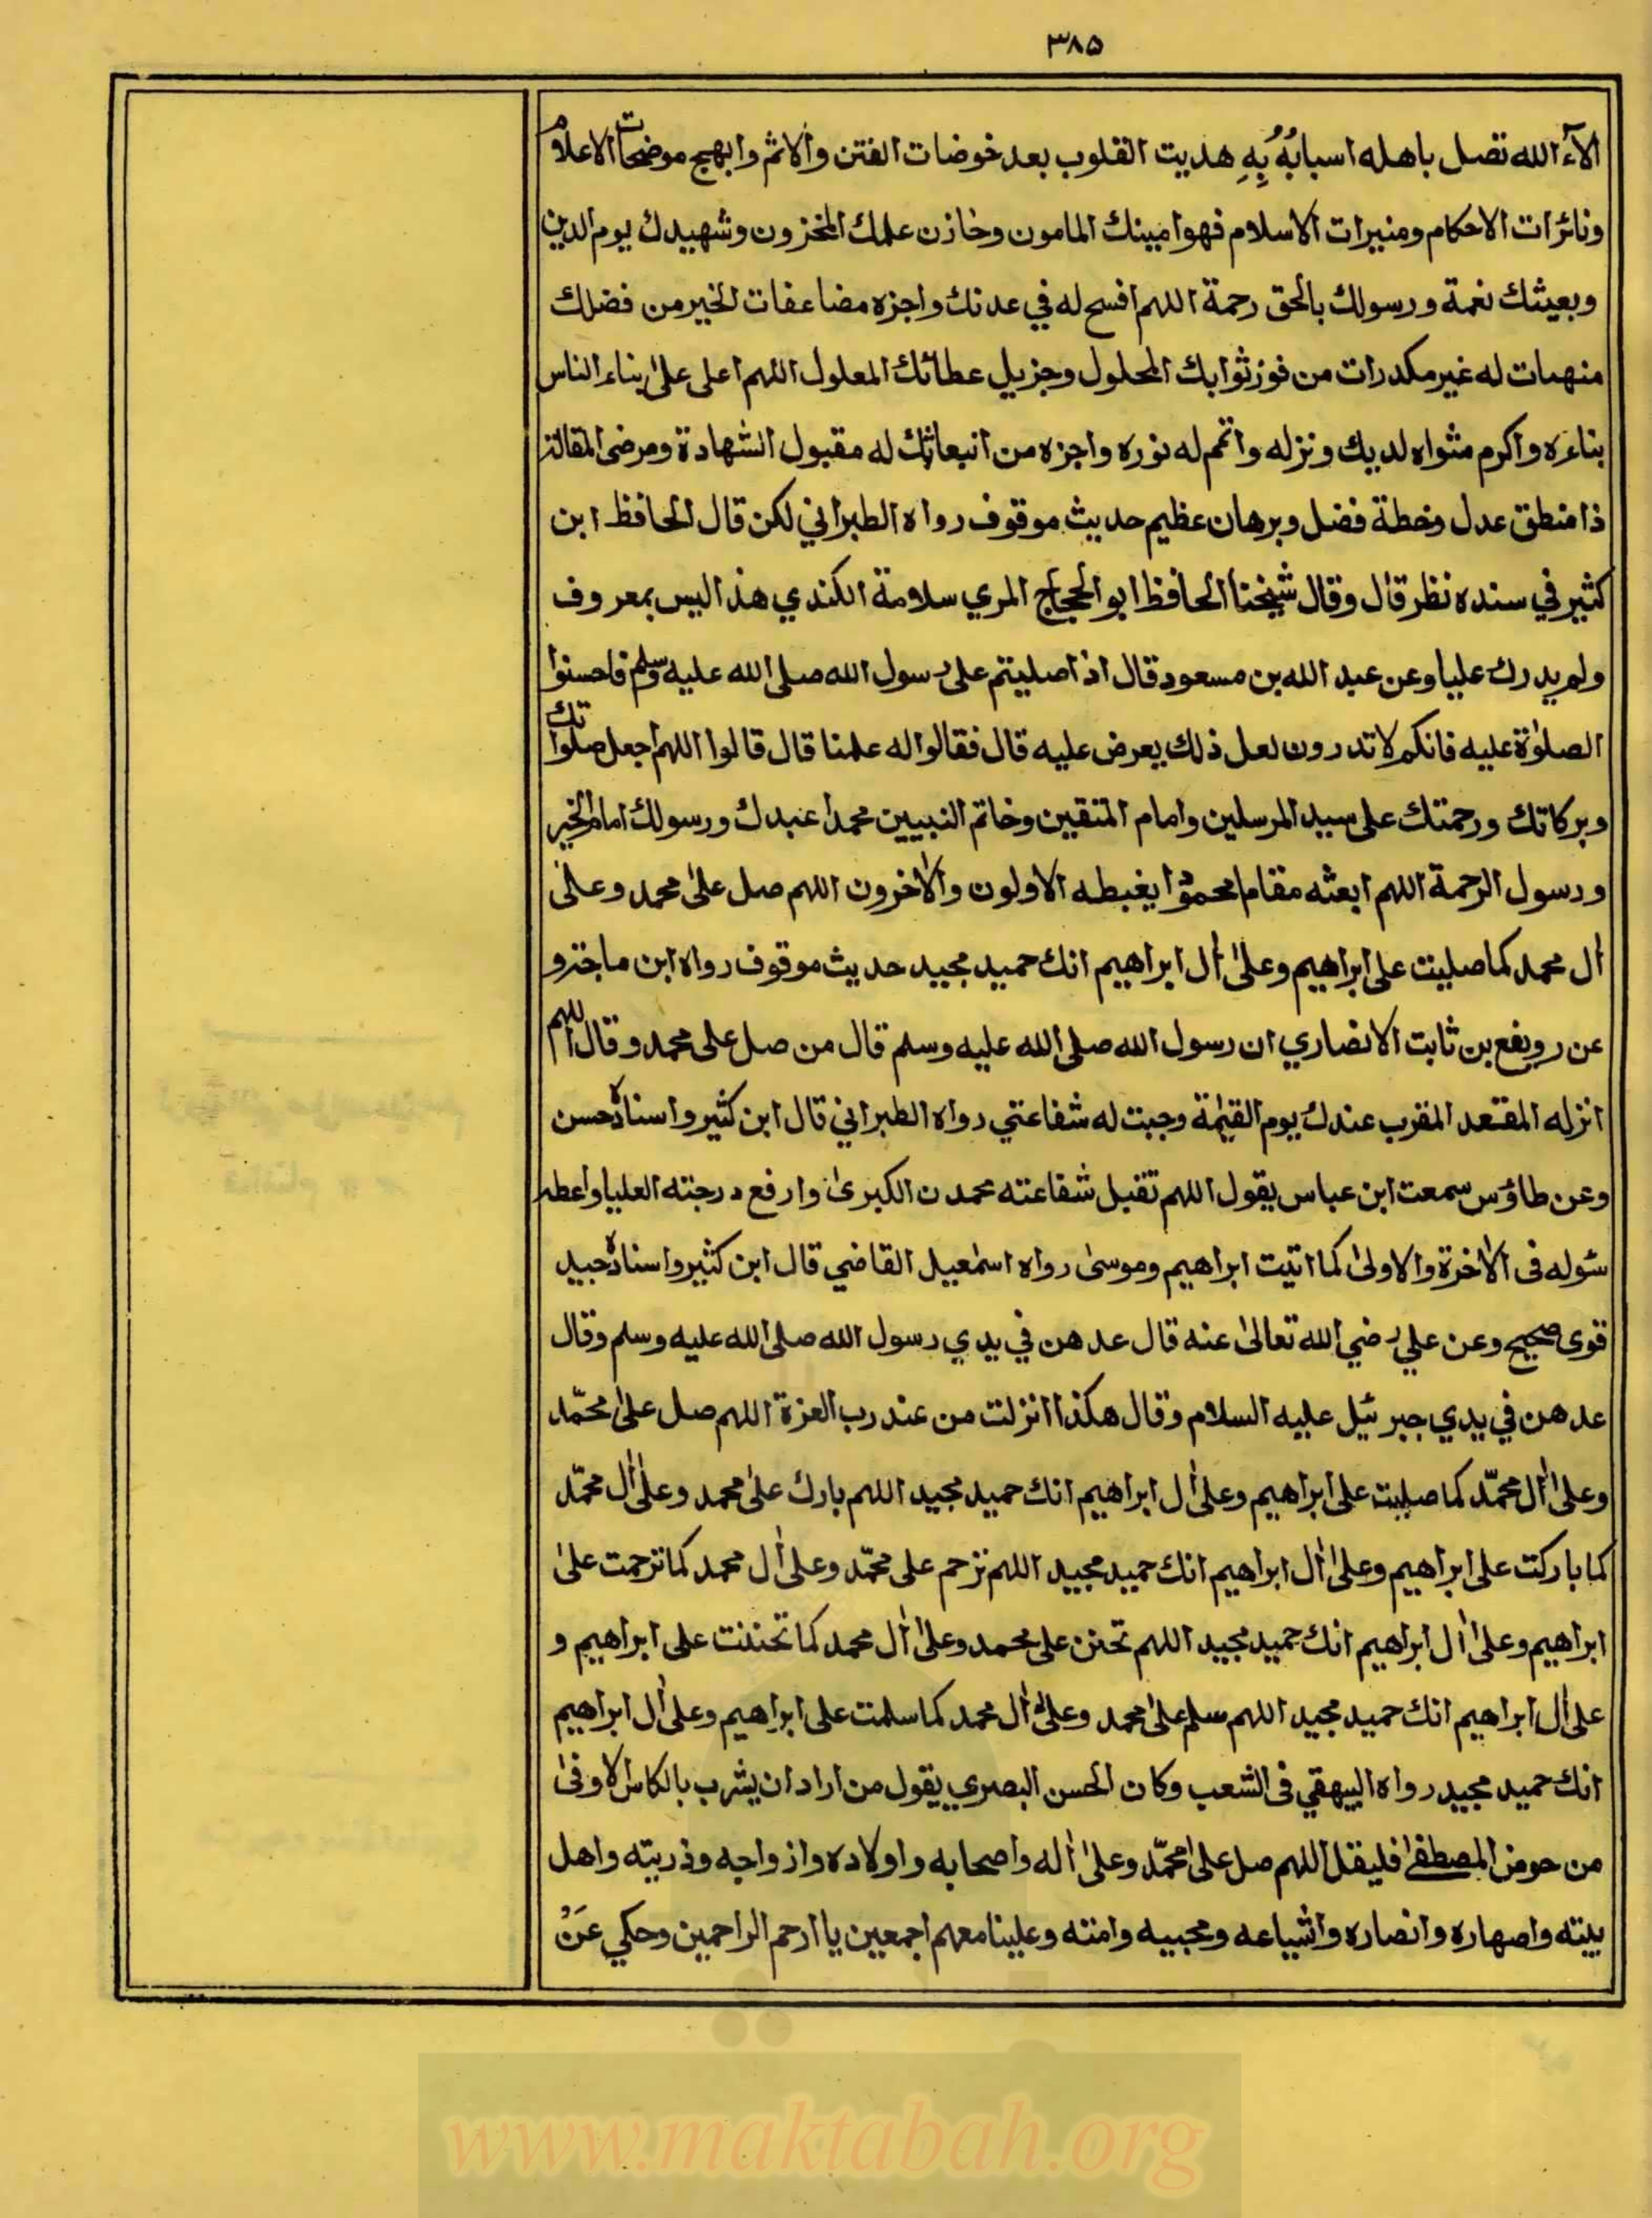 ٣٨٥
الآء الله تصل باهله اسبابُهُ بِهِ هديت القلوب بعد خوضات الفتن والاثم وابهج موضحات الاعلام
ونائرات الاحكام ومنيرات الاسلام فهو امينك المامون وخازن علمك المخزون وشهيدك يوم الدين
وبعيثك نعمة ورسولك بالحق رحمة اللهم افسح له في عدنك واجزه مضاعفات الخير من فضلك
منهيات له غير مكدرات من فوز ثوابك المحلول وجزيل عطائك المعلول اللهم اعلى على بناء الناس
بناءه واكرم مثواه لديك ونزله واتمم له نوره واجزه من انبعاثك له مقبول الشهادة ومرضى المقالة
ذا منطق عدل وخطة فضل وبرهان عظيم حديث موقوف رواه الطبراني لكن قال الحافظ ابن
كثير في سنده نظر قال وقال شيخنا الحافظ ابو الحجاج المري سلامة الكندي هذا ليس بمعروف
ولم يدرك عليا وعن عبد الله بن مسعود قال اذا صليتم على رسول الله صلى الله عليه وسلم فاحسنوا
الصلوٰة عليه فانكم لا تدرون لعل ذلك يعرض عليه قال فقالوا له علمنا قال قالوا اللهم اجعل صلواتك
وبركاتك ورحمتك على سيد المرسلين وامام المتقين وخاتم النبيين محمدا عبدك ورسولك امام الخير
ورسول الرحمة اللهم ابعثه مقاما محمودا يغبطه الاولون والاٰخرون اللهم صل علىٰ محمد وعلىٰ
اٰل محمد كما صليت على ابراهيم وعلىٰ اٰل ابراهيم انك حميد مجيد حديث موقوف رواه ابن ماجة و
عن رويفع بن ثابت الانصاري ان رسول الله صلى الله عليه وسلم قال من صل على محمد وقال اللهم
انزله المقعد المقرب عندك يوم القيٰمة وجبت له شفاعتي رواه الطبراني قال ابن كثير واسناده حسن
وعن طاؤس سمعت ابن عباس يقول اللهم تقبل شفاعته محمدن الكبرىٰ وارفع درجته العليا واعطه
سوله فى الاٰخرة والاولىٰ كما اتيت ابراهيم وموسىٰ رواه اسمٰعيل القاضي قال ابن كثير واسناده جيد
قوى صحيح وعن علي رضي الله تعالىٰ عنه قال عدهن في يدي رسول الله صلى الله عليه وسلم وقال
عدهن في يدي جبرئيل عليه السلام وقال هكذا انزلت من عند رب العزة اللهم صل علىٰ محمّد
وعلىٰ اٰل محمّد كما صليت على ابراهيم وعلىٰ اٰل ابراهيم انك حميد مجيد اللهم بارك علىٰ محمد وعلىٰ اٰل محمّد
كما باركت على ابراهيم وعلىٰ اٰل ابراهيم انك حميد مجيد اللهم ترحم على محمّد وعلىٰ اٰل محمد كما ترحمت علىٰ
ابراهيم وعلىٰ اٰل ابراهيم انك حميد مجيد اللهم تحنن على محمد وعلىٰ اٰل محمد كما تحننت على ابراهيم و
علىٰ اٰل ابراهيم انك حميد مجيد اللهم سلم علىٰ محمد وعلىٰ اٰل محمد كما سلمت على ابراهيم وعلىٰ اٰل ابراهيم
انك حميد مجيد رواه البيهقي فى الشعب وكان الحسن البصري يقول من اراد ان يشرب بالكاس الاوفىٰ
من حوض المصطفىٰ فليقل اللهم صل علىٰ محمّد وعلىٰ اٰله واصحابه واولاده وازواجه وذريته واهل
بيته واصهاره وانصاره واشياعه ومحبيه وامته وعلينا معهم اجمعين يا ارحم الراحمين وحكي عَنْ
www.maktabah.org